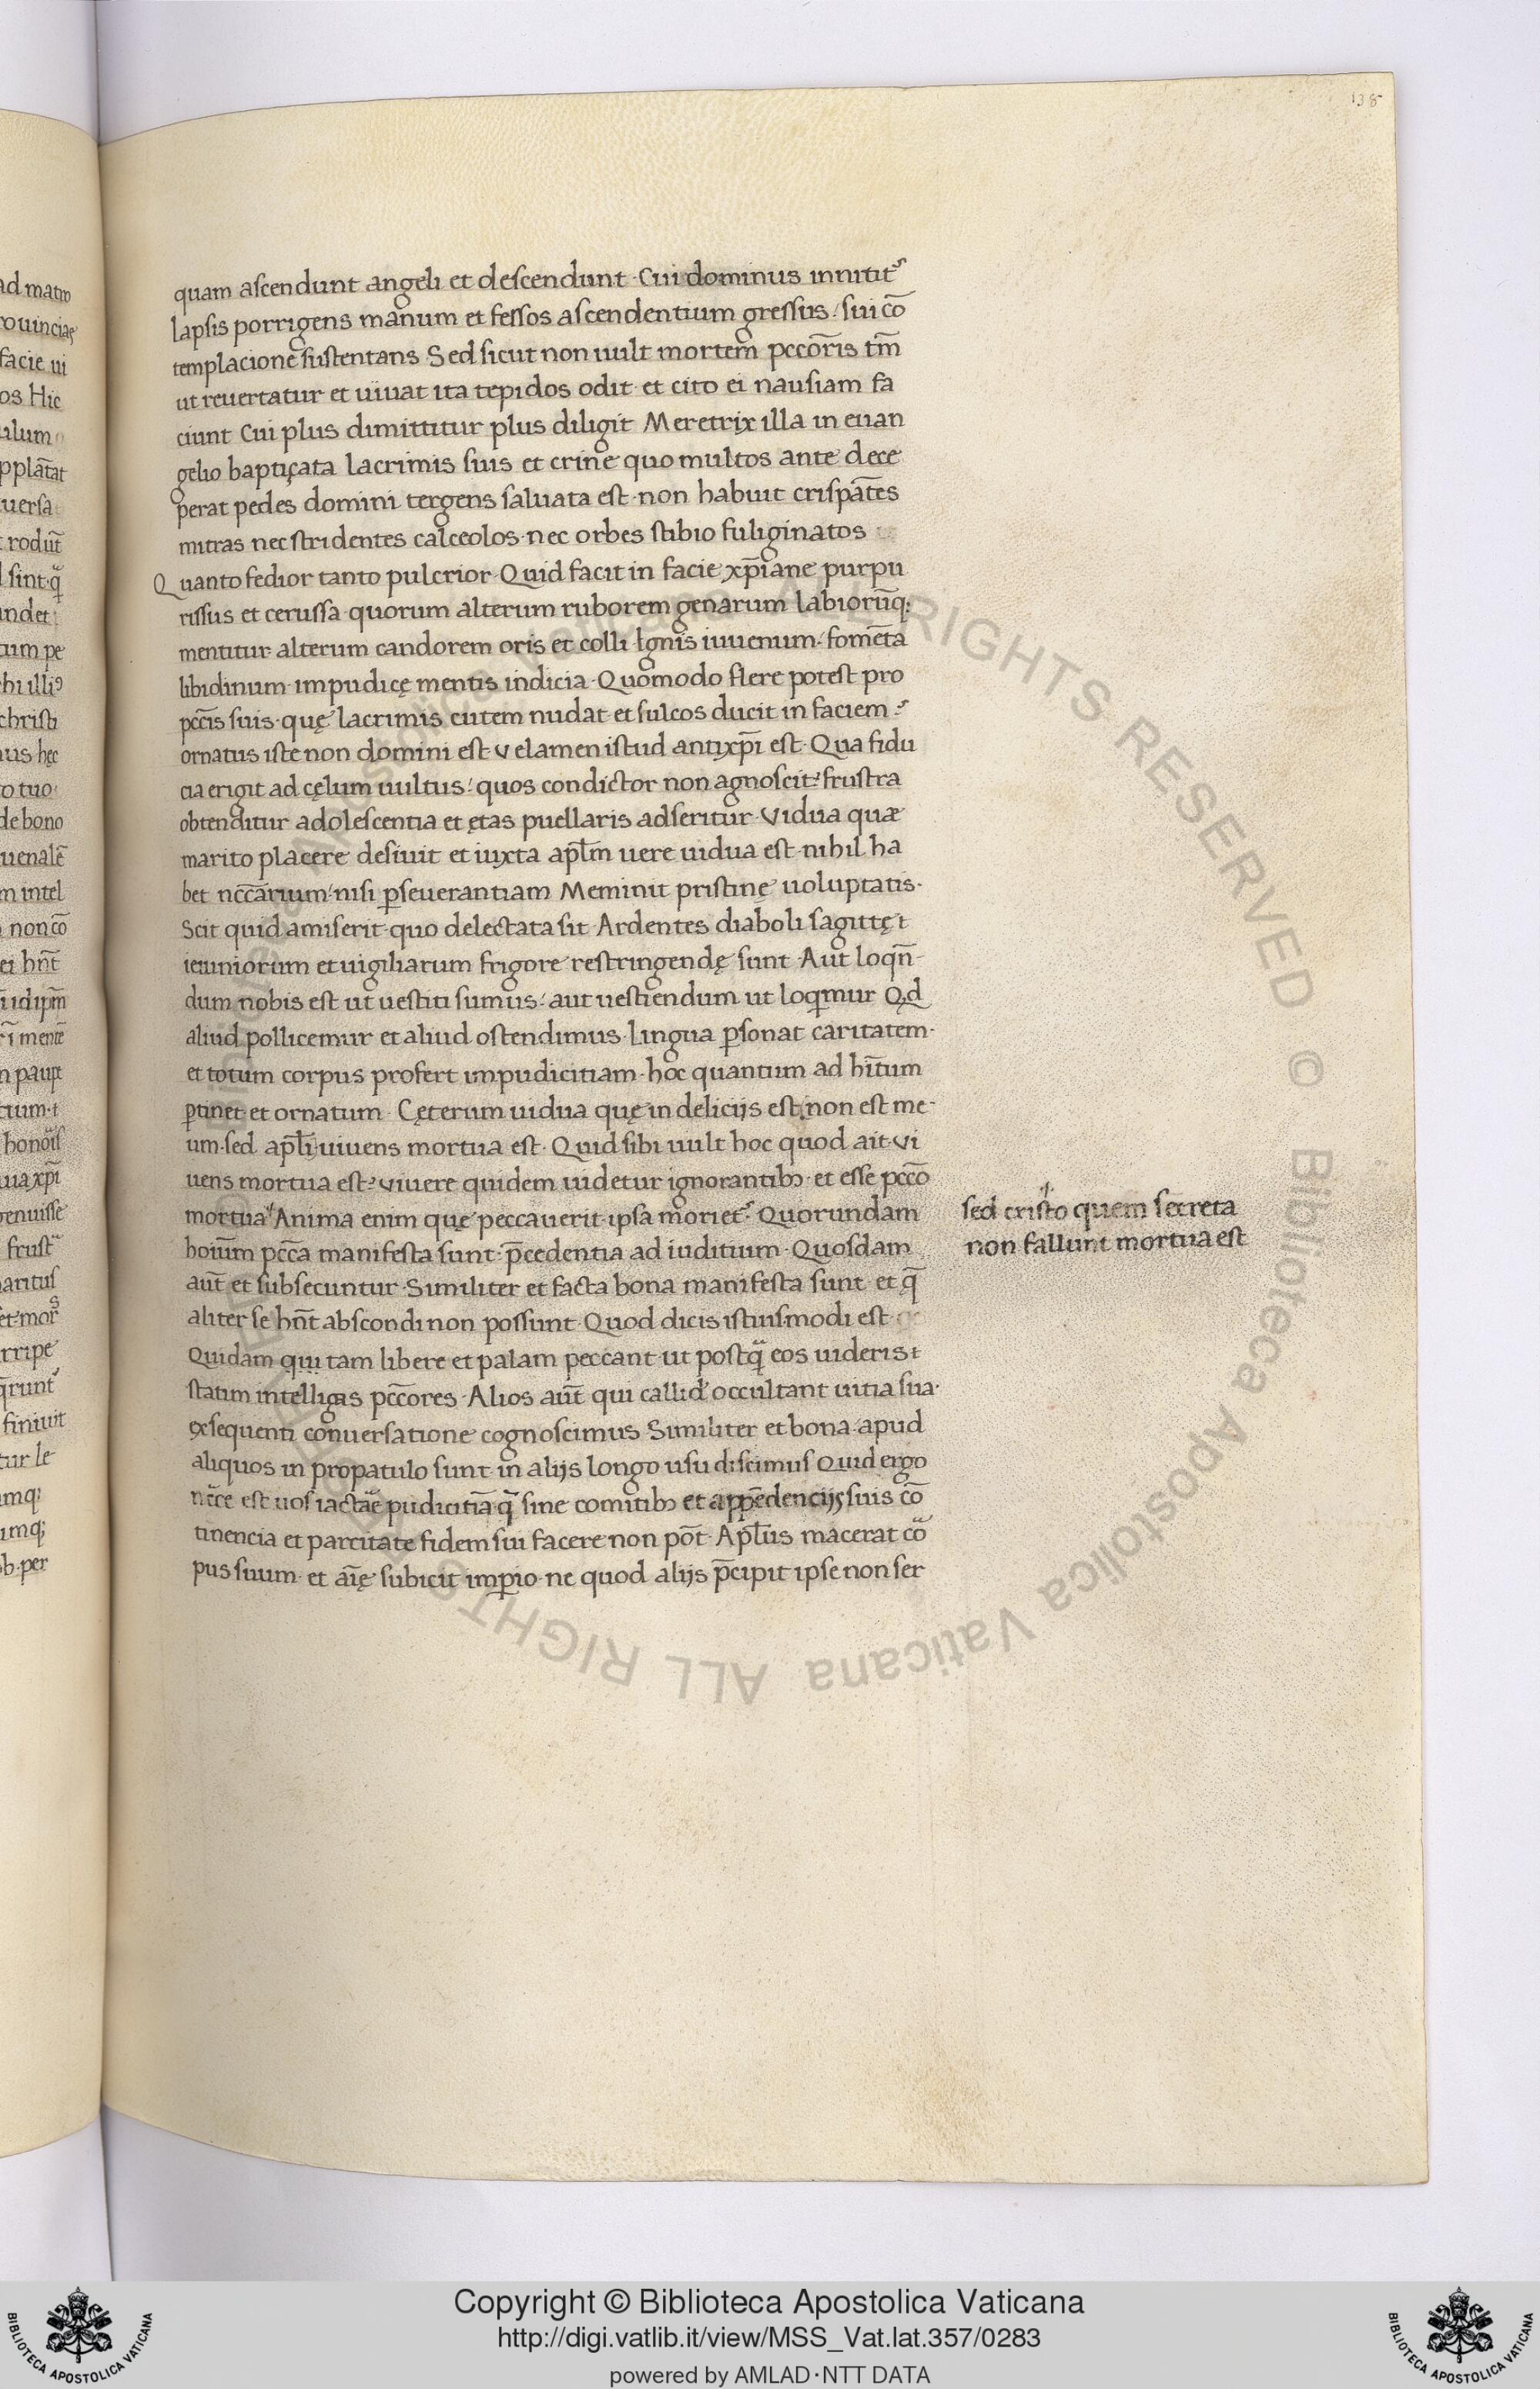 138
quam ascendunt angeli et descendunt · Cui dominus innitit᷑
lapsis porrigens manum et fessos ascendentium gressus · sui cō
templacione sustentans Sed sicut non uult mortem pccōris tm̄
ut reuertatur et uiuat ita tepidos odit · et cito ei nausiam fa
ciunt Cui plus dimittitur plus diligit Meretrix illa in euan
gelio baptiçata lacrimis suis et crine quo multos ante dece
perat pedes domini tergens saluata est · non habuit crispātes
mitras nec stridentes calceolos · nec orbes stibio fuliginatos
Quanto fedior tanto pulcrior · Quid facit in facie xp̄iane purpu
rissus et cerussa · quorum alterum ruborem genarum labiorūq;
mentitur alterum candorem oris et colli · Ignis iuuenum · fomēta
libidinum · impudicę mentis indicia · Quomodo flere potest pro
pcc̄is suis · quę lacrimis cutem nudat · et sulcos ducit in faciem ·
ornatus iste non domini est Velamen istud antixp̄i est · Qua fidu
cia erigit ad cęlum uultus · quos condictor non agnoscit · frustra
obtenditur adolescentia et ętas puellaris adseritur · Vidua quæ
marito placere desiuit et iuxta apl̄m uere uidua est · nihil ha
bet ncc̄arium · nisi ꝑseuerantiam Meminit pristinę uoluptatis ·
Scit quid amiserit · quo delectata sit · Ardentes diaboli sagittę
ieiuniorum et uigiliarum frigore restringendę sunt · Aut loqn̄
dum nobis est ut uestiti sumus · aut uestiendum ut loqͥmur Qd
aliud pollicemur et aliud ostendimus · Lingua ꝑsonat caritatem ·
et totum corpus profert impudicitiam · hoc quantum ad hītum
ꝑtinet et ornatum · Cęterum uidua quę in delicijs est, non est me
um · sed apl̄i · uiuens mortua est · Quid sibi uult hoc quod ait · Vi
uens mortua est · Viuere quidem uidetur ignorantibꝫ · et esse pccō
mortua Anima enim quę peccauerit · ipsa moriet᷑ · Quorundam
sed cristo quem secreta
non fallunt mortua est
hoīum pcc̄a manifesta sunt · p̄cedentia ad iuditium · Quosdam
aut̄ et subsecuntur · Similiter et facta bona manifesta sunt · et q̄
aliter se hn̄t abscondi non possunt · Quod dicis istiusmodi est
Quidam qui tam libere et palam peccant · ut postqͣ eos uideris
statim intelligas pccōres · Alios aut̄ qui callide occultant uitia sua ·
exsequenti conuersatione cognoscimus Similiter et bona · apud
aliquos in propatulo sunt · in alijs longo usu discimus Quid ergo
nc̄ce est uos iactae pudicitiā qͣ sine comitibꝫ et appēdencijs suis cō
tinencia et parcitate fidem sui facere non pōt · Apl̄us macerat coͣ
pus suum · et aīę subicit imꝑio · ne quod alijs p̄cipit ipse non ser
ALL RIGHTS RESERVED © Biblioteca Apostolica Vaticana
Copyright © Biblioteca Apostolica Vaticana
http://digi.vatlib.it/view/MSS_Vat.lat.357/0283
powered by AMLAD·NTT DATA
BIBLIOTECA APOSTOLICA VATICANA
BIBLIOTECA APOSTOLICA VATICANA